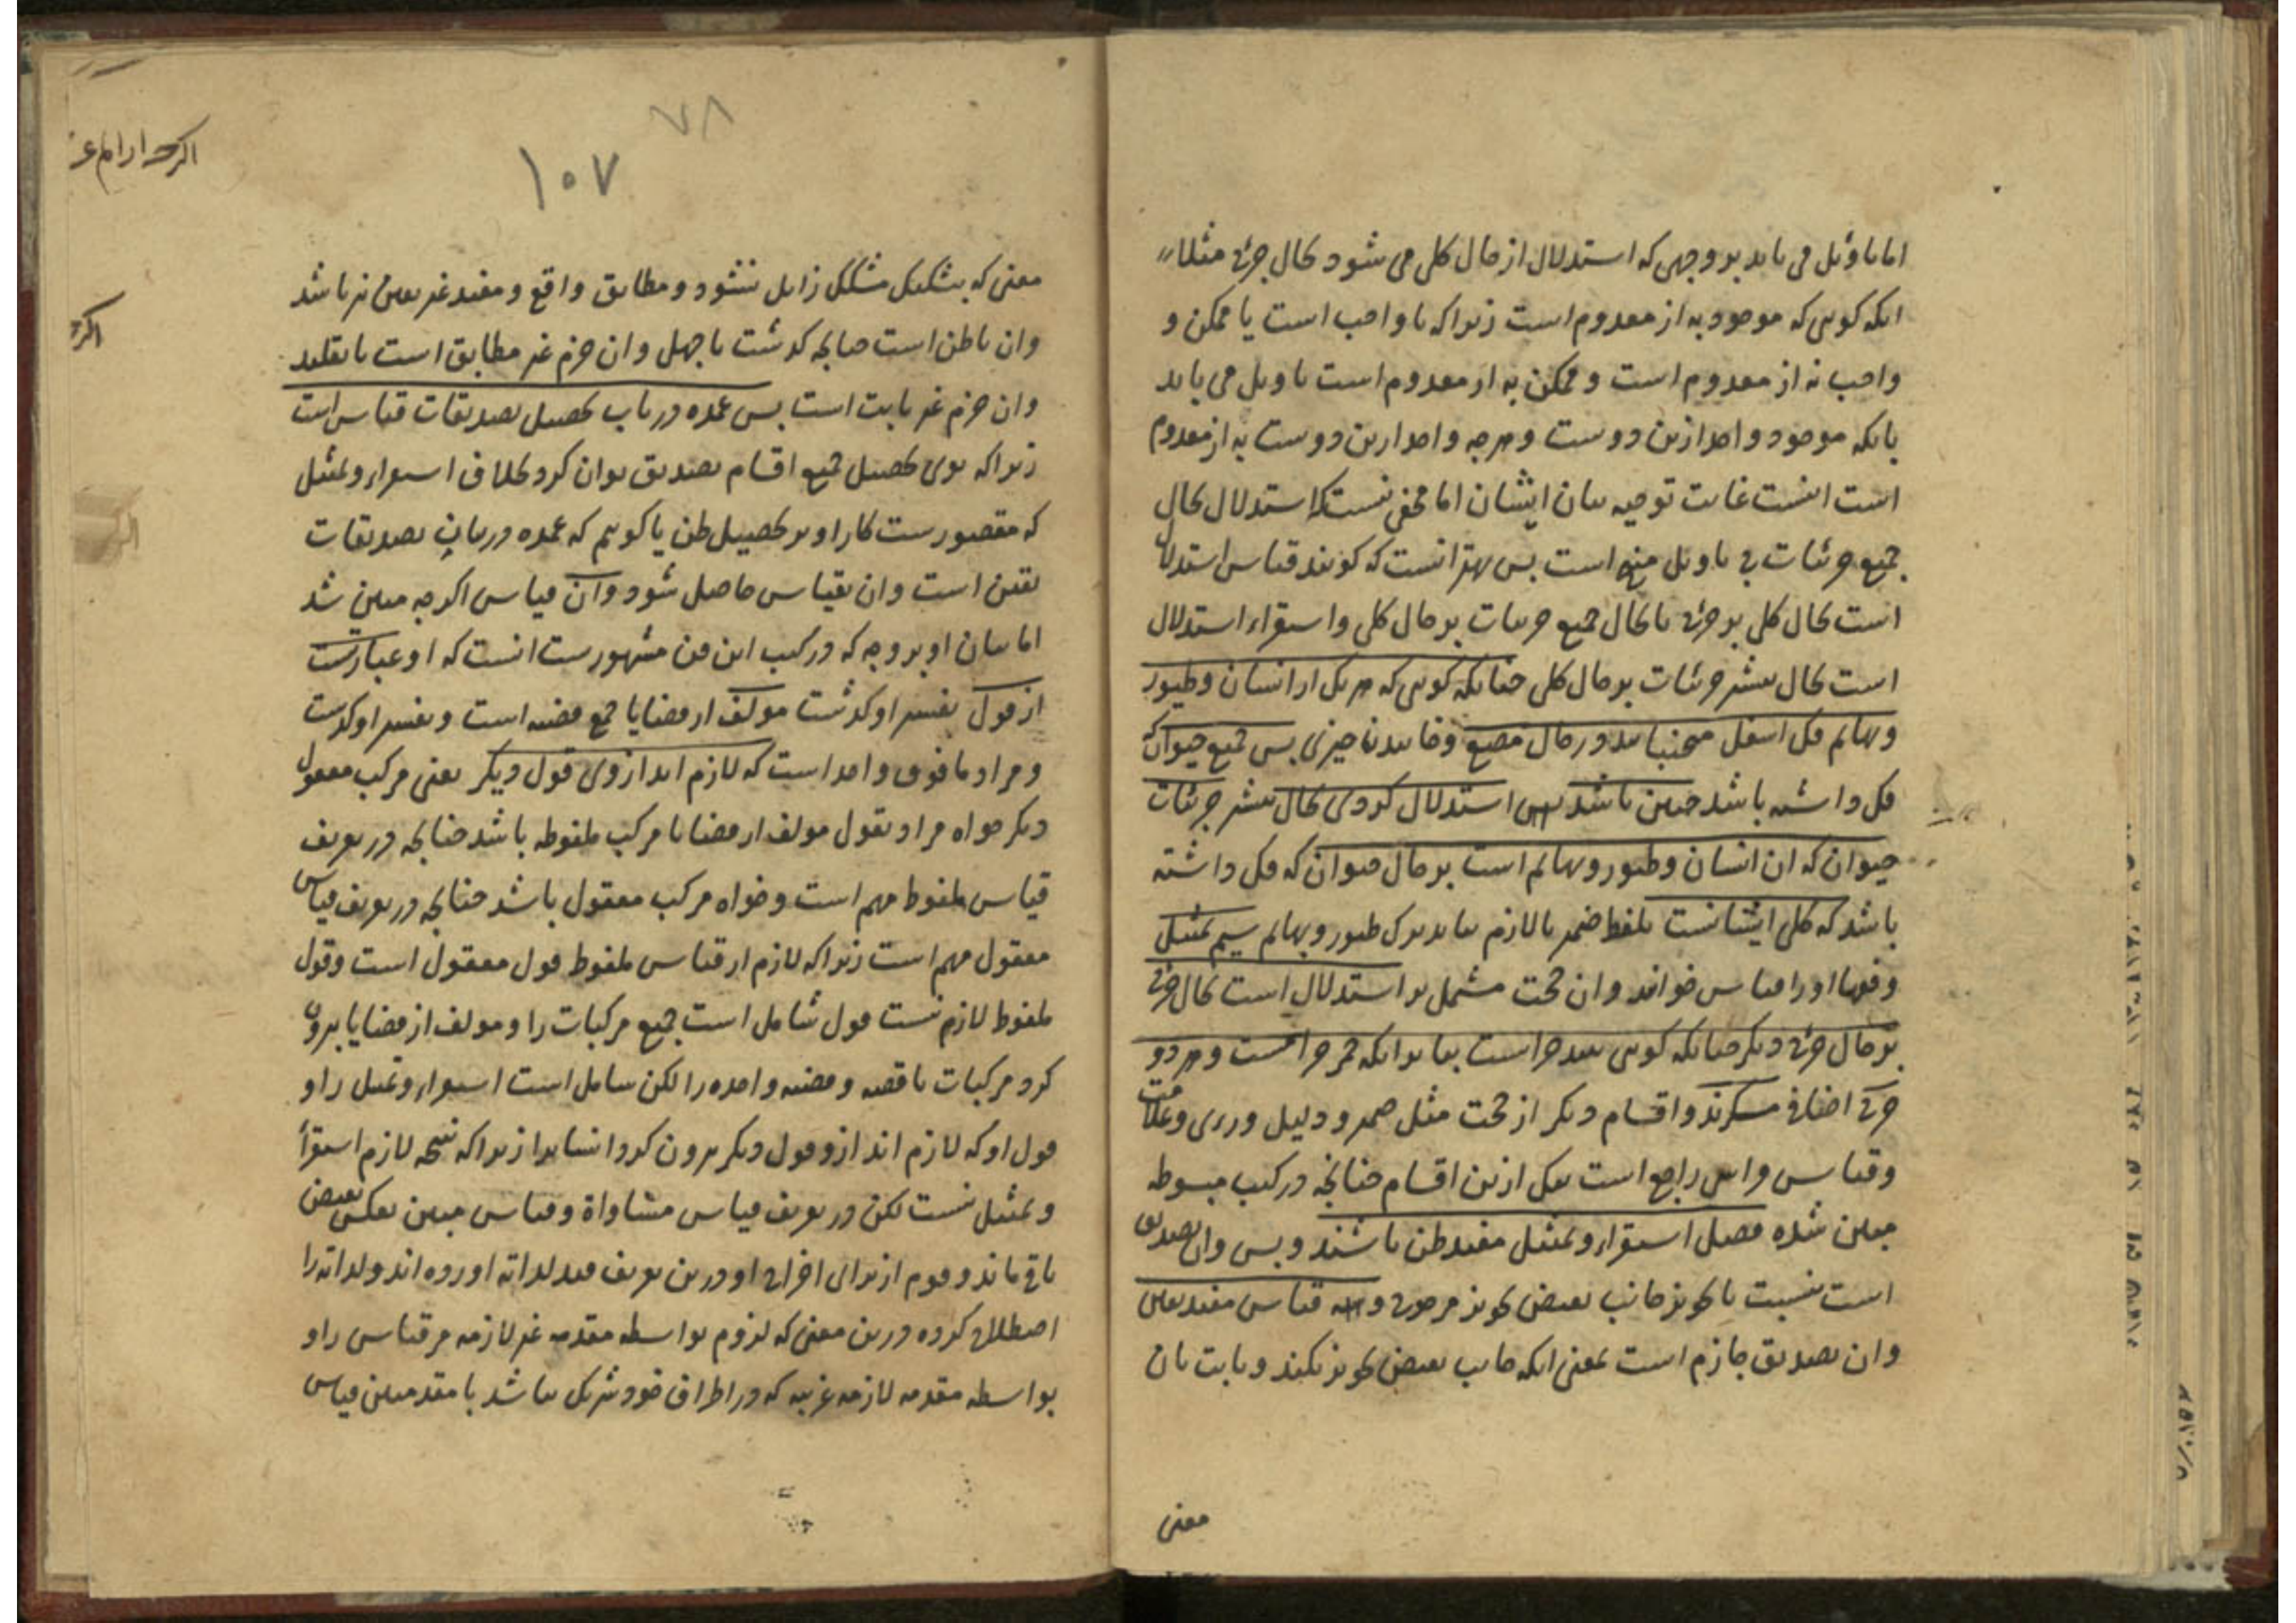 اما تاویل می یابد بر وجهی که استدلال از حال کلی می شود بحال جزئی مثلا
انکه کویی که موجود به از معدوم است زیرا که یا واجب است یا ممکن و
واجب به از معدوم است و ممکن به از معدوم است تاویل می یابد
بانکه موجود واحد ازین دوست و هرچه واحد ازین دوست به از معدوم
است اینست غایت توجیه بیان ایشان اما مخفی نیست که استدلال بحال
جمیع جزئیات بی تاویل منتج است بس بهتر انست که کویند قیاس استدلال
است بحال کلی بر جزئی یا بحال جمیع جزییات بر حال کلی و استقراء استدلال
است بحال بیشتر جزئیات بر حال کلی جنانکه کویی که هر یک از انسان و طیور
و بهائم فک اسفل می جنباند در حال مضغ و خاییدن جیزی بس جمیع حیوان که
فک داشته باشد جنین باشد بس استدلال کردی بحال بیشتر جزئیات
حیوان که ان انسان و طیور و بهائم است بر حال حیوان که فک داشته
باشد که کلی ایشانست بلفظ ضمیر یا لازم بباید ترک طیور و بهائم سیم تمثیل
و فقها او را قیاس خوانند و ان حجت مشتمل بر استدلال است بحال جزئی
بر حال جزئی دیکر جنانکه کویی نبیذ حرامست بنا بر انکه خمر حرامست و هر دو
جزئی اضافی مسکرند و اقسام دیکر از حجت مثل ضمیر و دلیل و رای و علامت
و قیاس فراسی راجع است بیکی ازین اقسام جنانجه در کتب مبسوطه
مبین شده فصل استقراء و تمثیل مفید ظن باشند و بس و ان تصدیق
است نسبت با تجویز جانب نقیض تجویز مرجوح و قیاس مفید یقین
و ان تصدیق جازم است بمعنی انکه جانب نقیض تجویز نکند و ثابت بان
معنی
۷۸
۱۰۷
معنی که بتشکیک مشکک زایل نشود و مطابق واقع و مفید غیر یقین نیز باشد
وان یا ظن است جنانجه کذشت یا جهل و ان جزم غیر مطابق است یا تقلید
وان جزم غیر ثابت است بس عمده در باب تحصیل تصدیقات قیاس است
زیرا که بوی تحصیل جمیع اقسام تصدیق توان کرد بخلاف استقراء و تمثیل
که مقصورست کار او بر تحصیل ظن یا کوییم که عمده در باب تصدیقات
یقین است و ان بقیاس حاصل شود و ان قیاس اکرجه مبین شد
اما بیان او بر وجه که در کتب این فن مشهورست انست که او عبارتست
از قول تفسیر او کذشت مولف از قضایا جمع قضیه است و تفسیر او کذشت
و مراد ما فوق واحد است که لازم اید از وی قول دیکر یعنی مرکب معقول
دیکر خواه مراد بقول مولف از قضایا مرکب ملفوظه باشد جنانجه در تعریف
قیاس ملفوظ مهم است و خواه مرکب معقول باشد جنانجه در تعریف قیاس
معقول مهم است زیرا که لازم از قیاس ملفوظ قول معقول است و قول
ملفوظ لازم نیست قول شامل است جمیع مرکبات را و مولف از قضایا بیرون
کرد مرکبات ناقصه و قضیه واحده را لکن شامل است استقراء و تمثیل را و
قول او که لازم اید ازو قول دیکر بیرون کرد اینها را زیرا که نتیجه لازم استقراء
و تمثیل نیست لکن در تعریف قیاس مساواة و قیاس مبین بعکس نقیض
باقی ماند و قوم از برای اخراج او درین تعریف قید لذاته اورده اند و لذاته را
اصطلاح کرده درین معنی که لزوم بواسطه مقدمه غیر لازمه مر قیاس را و
بواسطه مقدمه لازمه غریبه که در اطراف خود شریک نباشد با مقدمتین قیاس